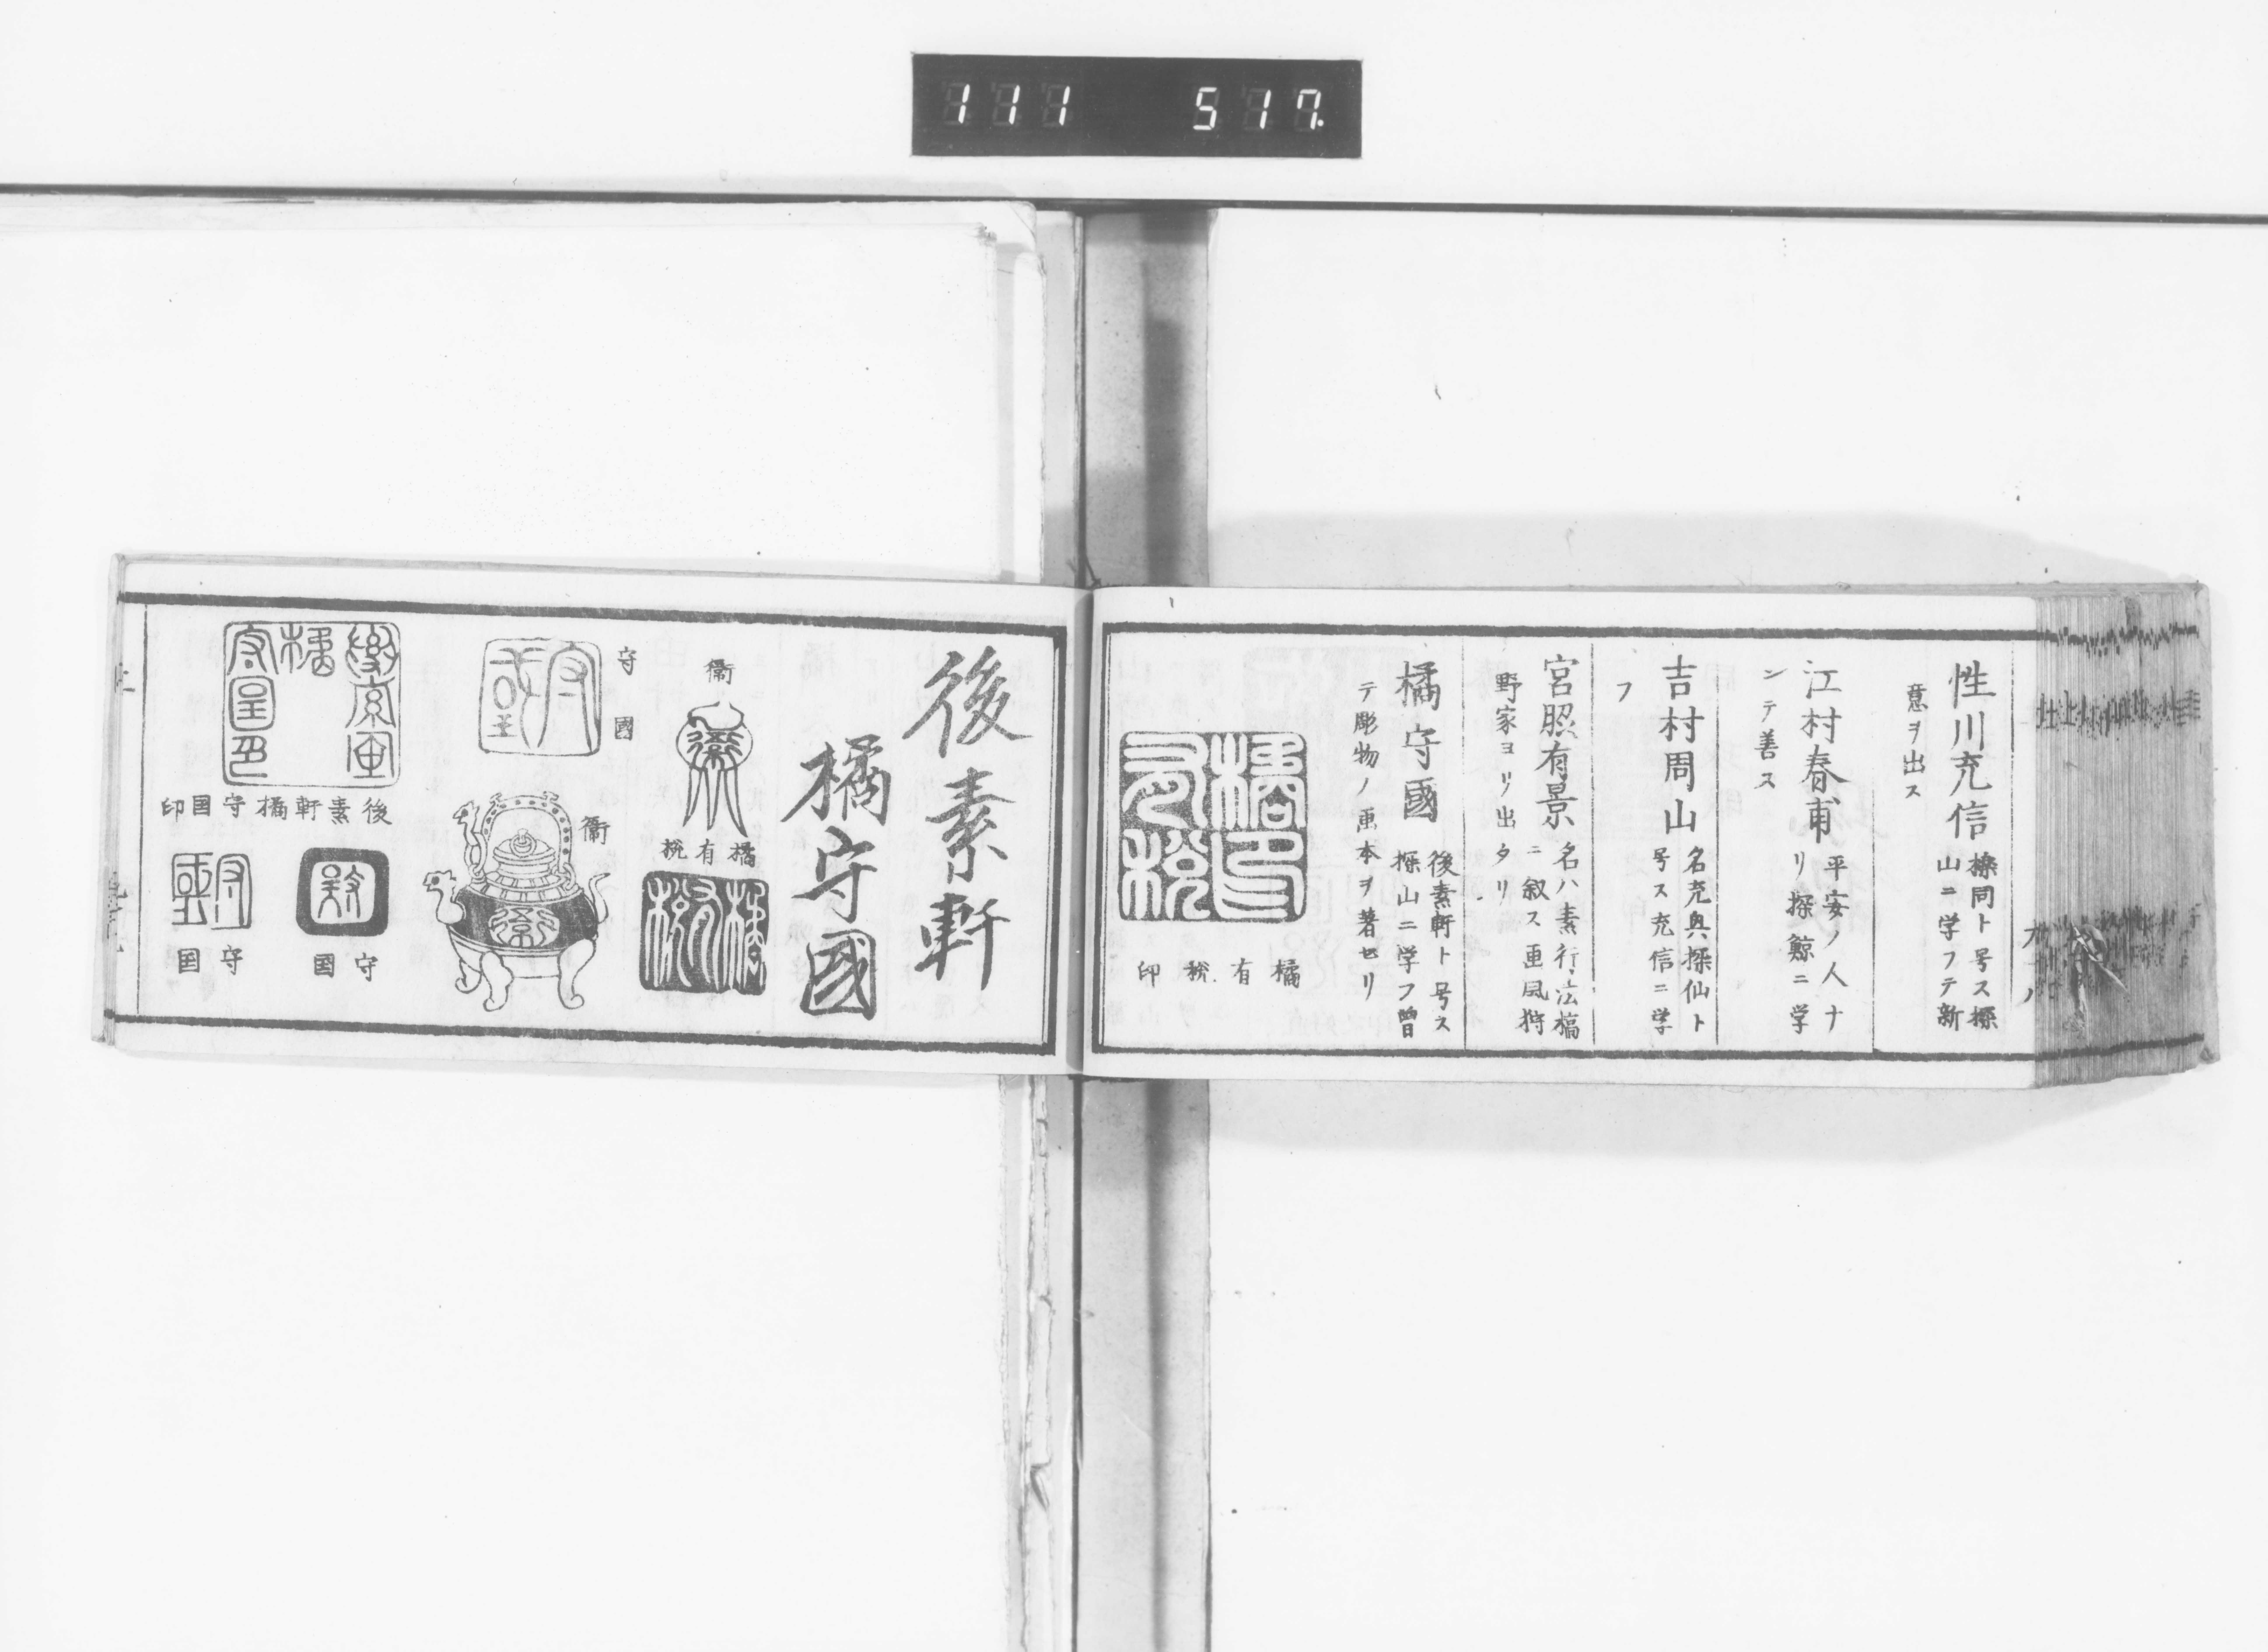 111 517.
性川充信
探同ト号ス探
山ニ学フテ新
意ヲ出ス
江村春甫
平安ノ人ナ
リ探鯨ニ学
ンテ善ス
吉村周山
名充興探仙ト
号ス充信ニ学
フ
宮照有景
名ハ素行法橋
ニ叙ス画風狩
野家ヨリ出タリ
橘守國
後素軒ト号ス
探山ニ学フ曽
テ彫物ノ画本ヲ著セリ
橘有税印
後素軒
橘守國
衞
橘有税
守國
衞
後素軒橘守国印
守国
守国